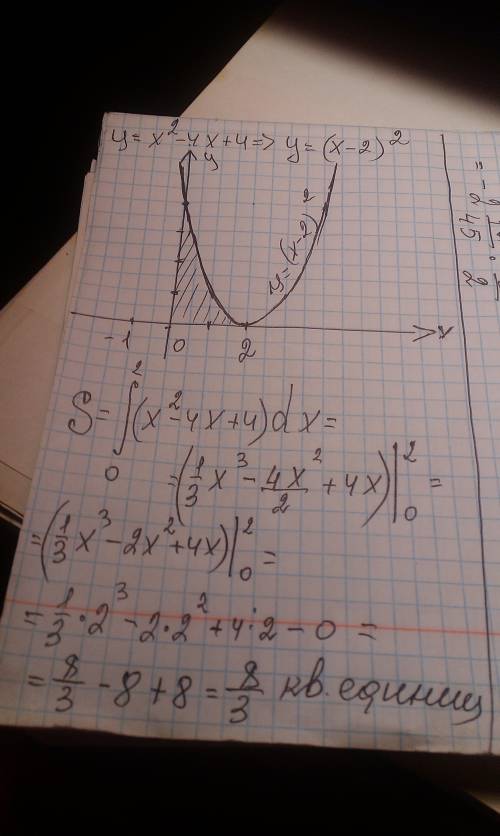 y = x² - 4x + 4 => y = (x-2)²
y
y = (x-2)²
x
-1 0 2
S = ∫₀² (x² - 4x + 4) dx =
= (1/3 x³ - 4x²/2 + 4x) |₀² =
= (1/3 x³ - 2x² + 4x) |₀² =
= 1/3 · 2³ - 2 · 2² + 4 · 2 - 0 =
= 8/3 - 8 + 8 = 8/3 кв. единиц